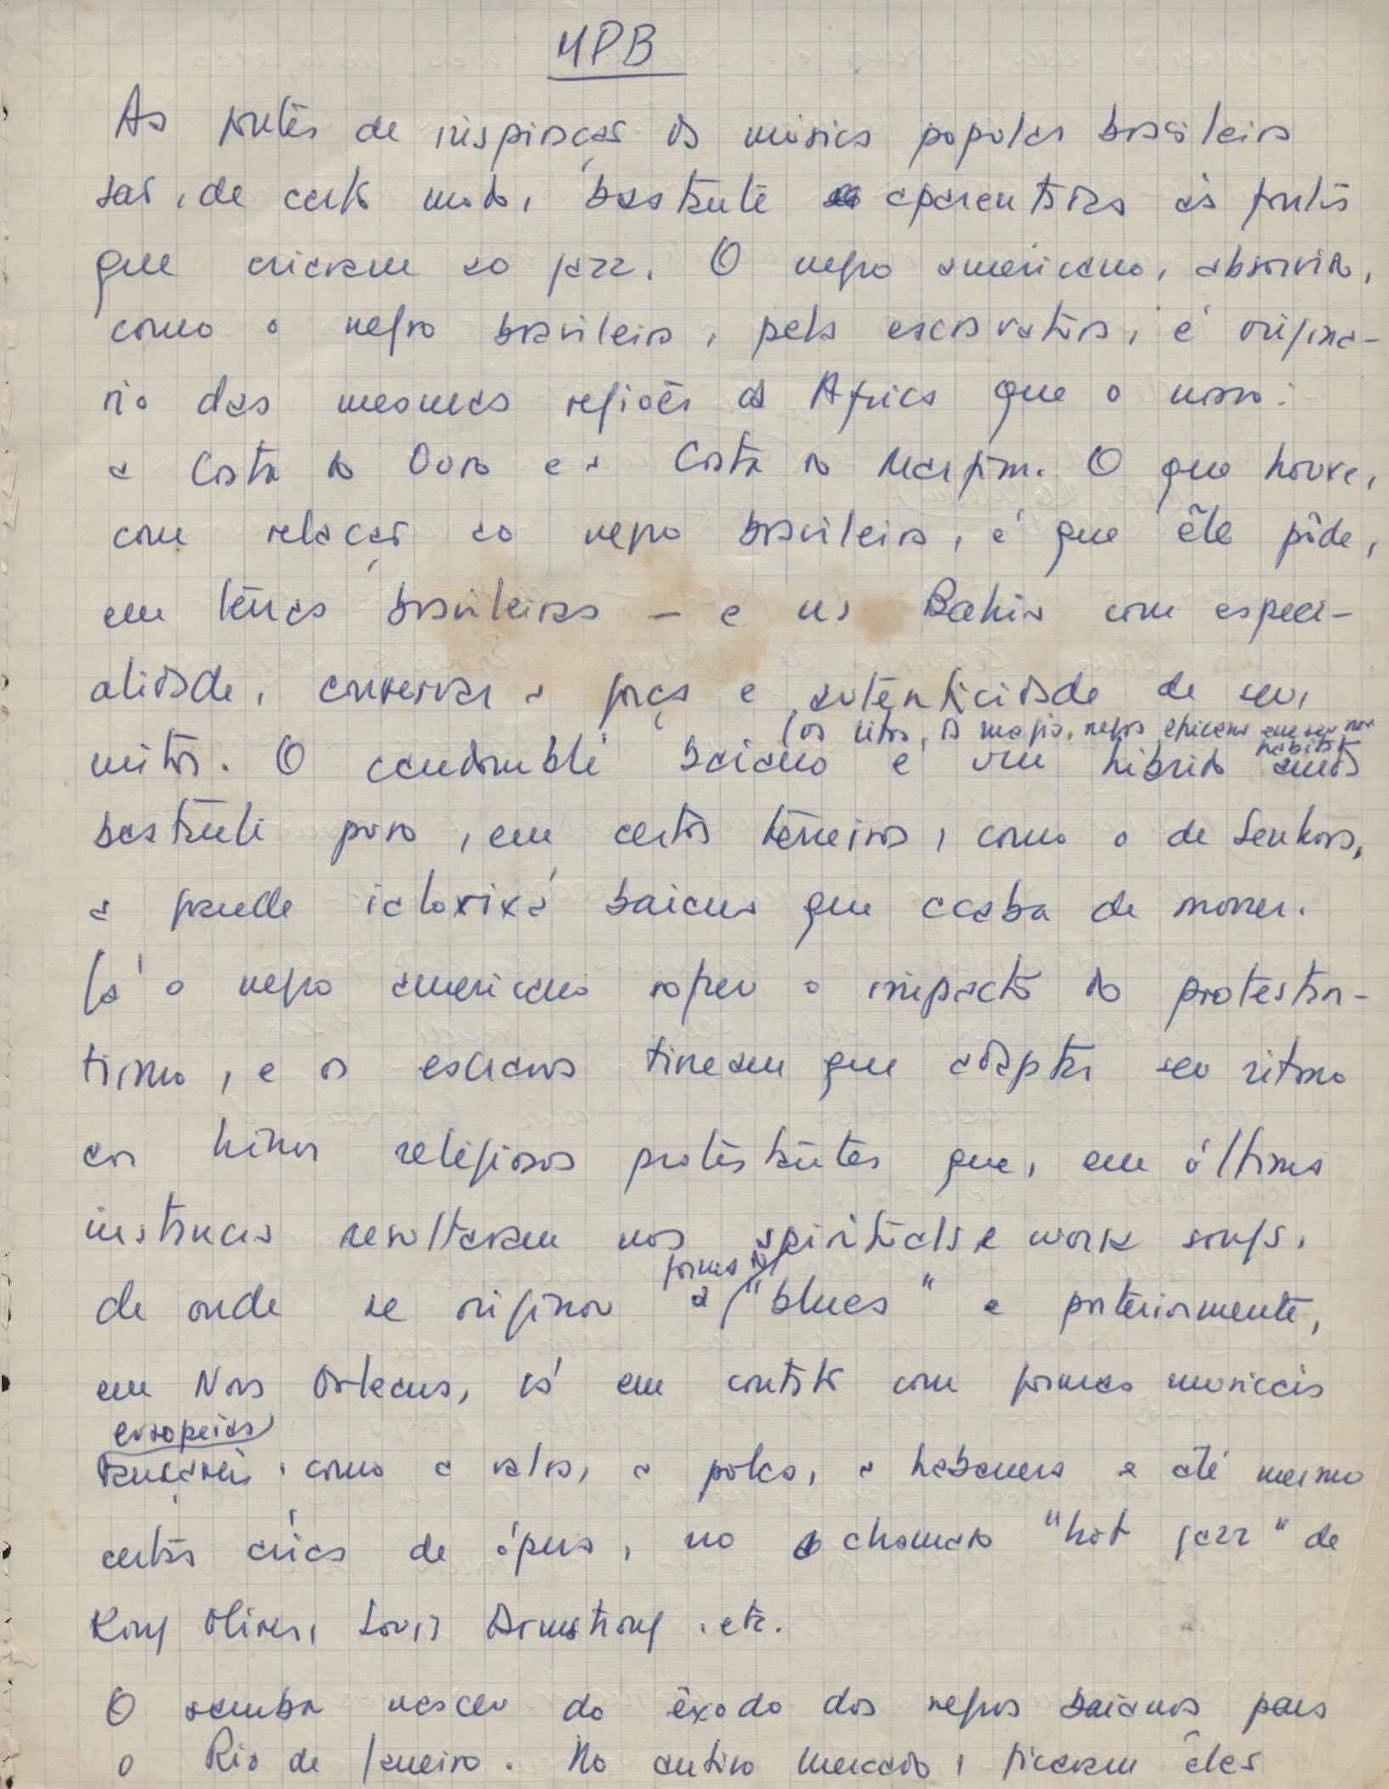 MPB
As fontes de inspiração da música popular brasileira
são, de certo modo, bastante aparentadas às fontes
que criaram ao jazz. O negro americano, absorvido,
como o negro brasileiro, pela escravatura, é originá-
rio das mesmas regiões da Africa que o nosso:
a Costa do Ouro e a Costa do Marfim. O que houve,
com relação ao negro brasileiro, é que êle pôde,
em terras brasileiras — e na Bahia com especi-
alidade, conservar a força e autenticidade de seus
(os ritos, a magia, negros africanos em seu novo
habitat
mitos. O candomblé baiano é um híbrido ainda
bastante puro, em certos terreiros, como o de Senhora,
a grande ialorixá baiana que acaba de morrer.
Já o negro americano sofreu o impacto do protestan-
tismo, e os escravos tiveram que adaptar seu ritmo
aos hinos religiosos protestantes que, em última
instância resultaram nos spirituals e work songs,
forma do
de onde se originou a "blues" e posteriormente,
em Nova Orleans, já em contato com formas musicais
européias
dançáveis, como a valsa, a polca, a habanera e até mesmo
certas árias de ópera, no chamado "hot jazz" de
King Oliver, Louis Armstrong, etc.
O samba nasceu do êxodo dos negros baianos para
o Rio de Janeiro. No antigo Mercado, ficavam êles